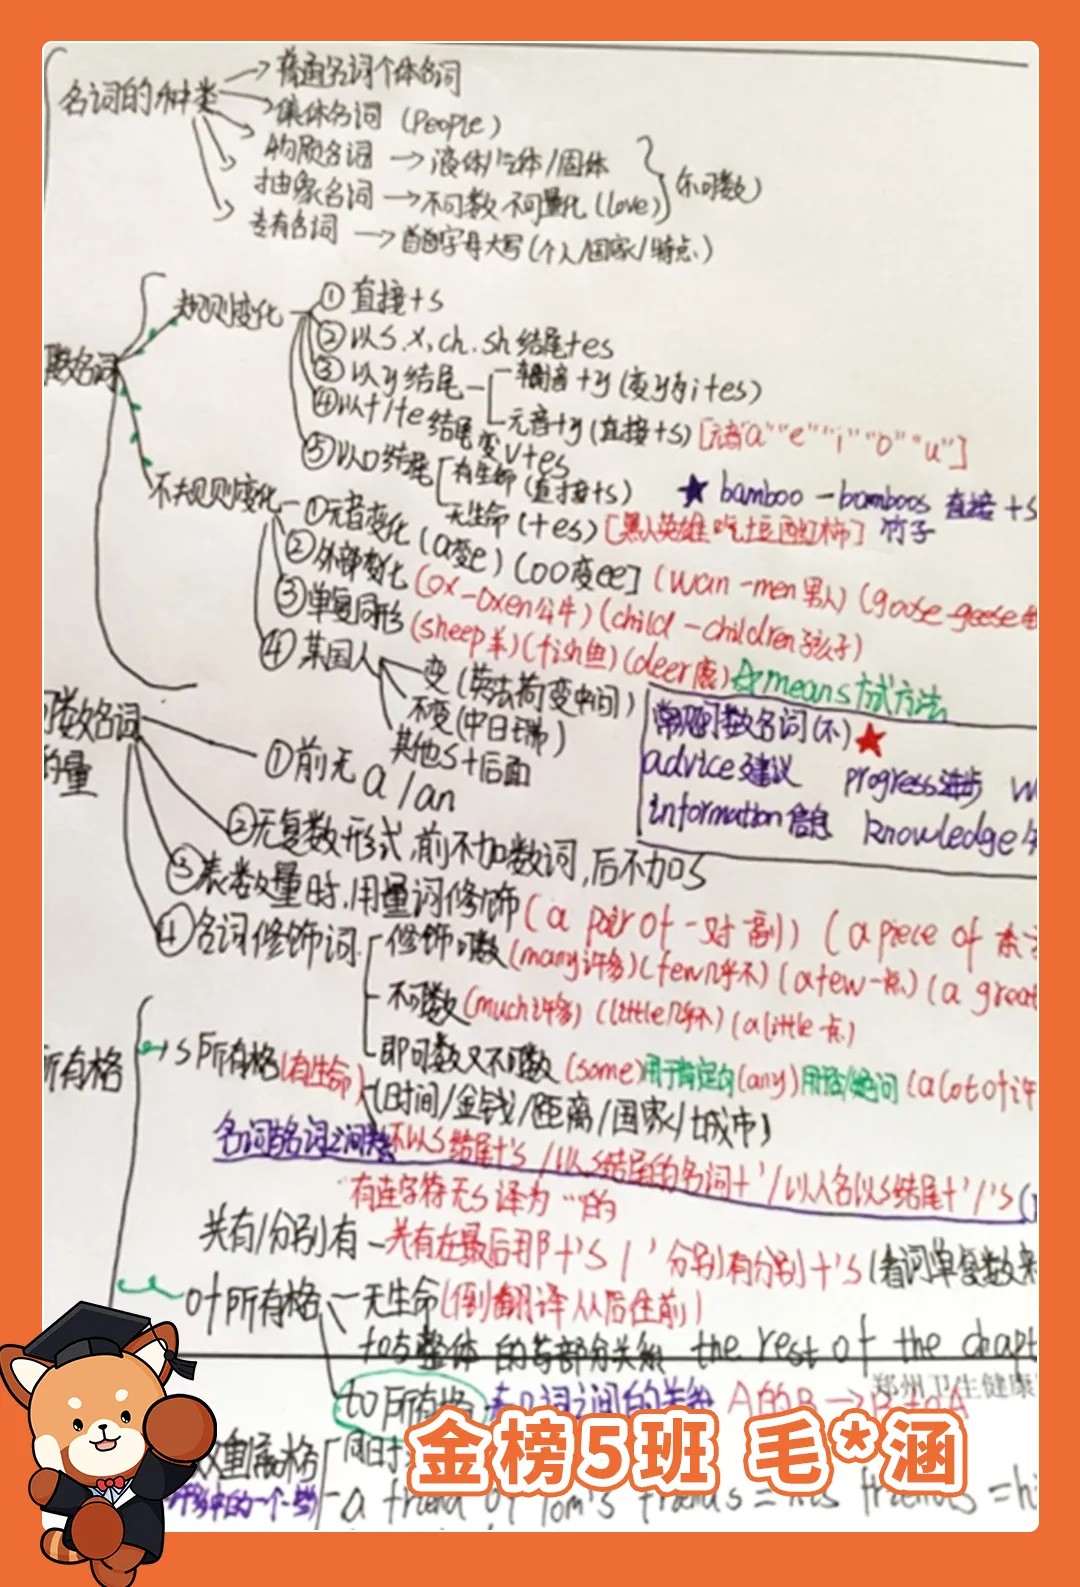 名词的种类
普通名词 个体名词
集体名词 (People)
物质名词 → 液体/气体/固体
抽象名词 → 不可数 不可量化 (love)
(不可数)
专有名词 → 首字母大写 (个人/国家/特点)
数名词
规则变化
① 直接+s
② 以s.x,ch.sh结尾+es
③ 以y结尾
辅音+y (变y为i+es)
元音+y (直接+s) [元音"a" "e" "i" "o" "u"]
④以f/fe结尾变v+es
⑤以o结尾
有生命 (直接+s)
★ bamboo - bamboos 直接+s
竹子
无生命 (+es) [黑人英雄吃土豆西红柿]
不规则变化
①元音变化 (a变e) (oo变ee] (man - men 男人) (goose - geese
②外部变化 (ox - oxen公牛) (child - children孩子)
③单复同形 (sheep羊) (fish鱼) (deer鹿) ☆means方式方法
④某国人
变 (英法荷变中间)
不变 (中日瑞)
其他s+后面
常见可数名词(不) ★
advice建议 progress进步
information信息 knowledge
数名词
量
①前无 a/an
②无复数形式,前不加数词,后不加s
③表数量时,用量词修饰 (a pair of 一对 副) (a piece of
④名词修饰词
修饰可数 (many许多) (few几乎不) (a few一点) (a great
不可数 (much许多) (little几乎不) (a little一点)
即可数又不可数 (some)用于肯定句 (any) (a lot of 许
所有格
's所有格 (有生命)
(时间/金钱/距离/国家/城市)
名词与名词之间
不以s结尾+'s /以s结尾的名词+'/以人名以s结尾+'/'s
有连字符无s 译为 "的
共有/分别有 - 共有在最后那+'s / ' 分别有分别+'s (看词单复数
of所有格 - 无生命 (倒翻译从后往前)
整体 的与部分关系 the rest of the chapt
郑州卫生健康
to所有格 表 词之间的 A的B → B to A
双重属格
中的一个一些
a friend of Tom's friends = his friends =
金榜5班 毛*涵